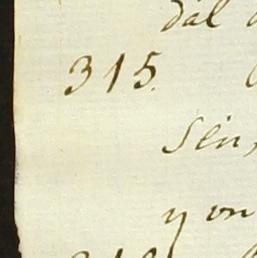 dal
315.
Sein,
y on